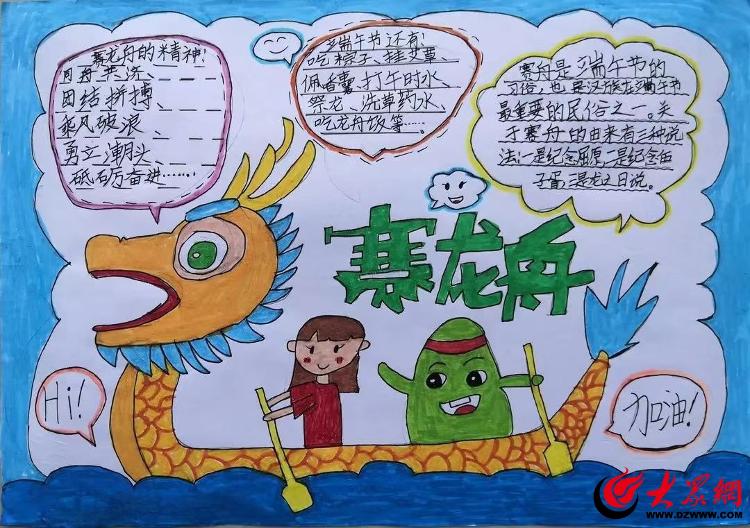 赛龙舟的精神!
同舟共济、
团结拼搏、
乘风破浪、
勇立潮头、
砥砺奋进……
端午节还有!
吃粽子、挂艾草、
佩香囊、打午时水、
祭龙、洗草药水、
吃龙舟饭等……
赛舟是端午节的
习俗,也是汉族在端午节
最重要的民俗之一。关
于赛舟的由来有三种说
法:一是纪念屈原,二是纪念伍
子胥,三是龙之日说。
赛龙舟
Hi!
加油!
大众网
WWW.DZWWW.COM